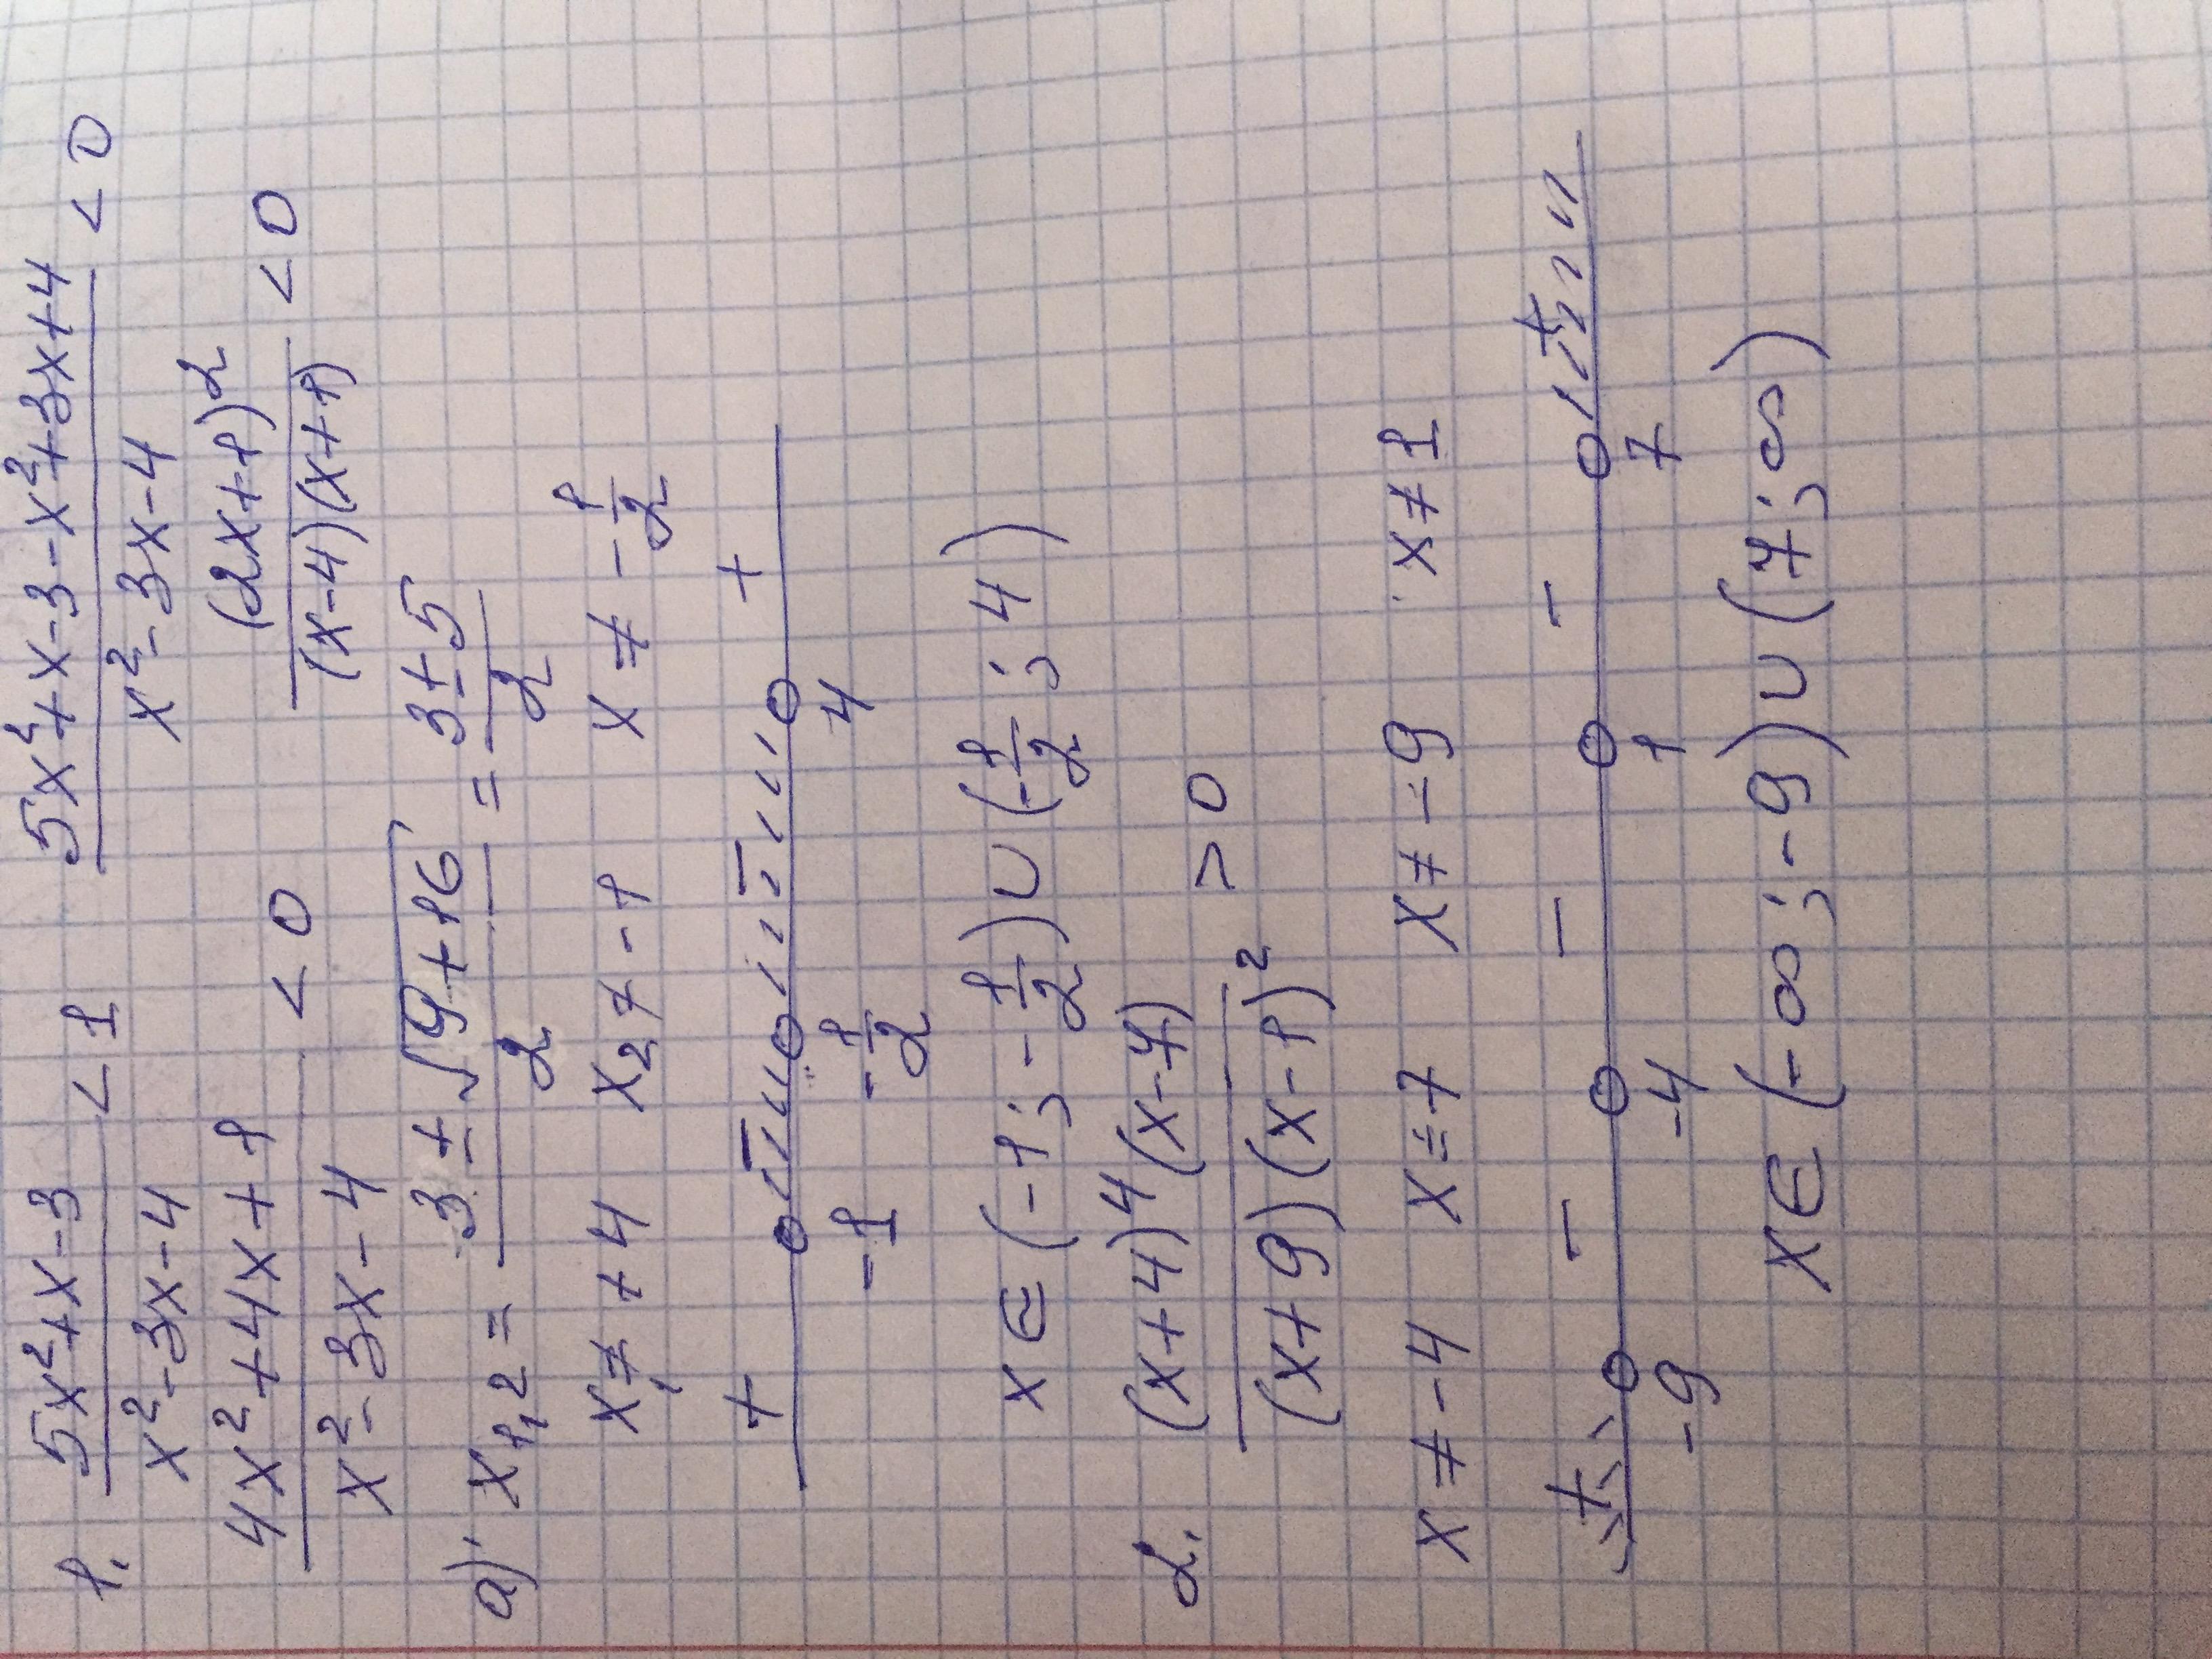 1. (5x²+x-3)/(x²-3x-4) < 1   (5x²+x-3-x²+3x+4)/(x²-3x-4) < 0
(4x²+4x+1)/(x²-3x-4) < 0   (2x+1)²/((x-4)(x+1)) < 0
a) x₁,₂ = (3±√(9+16))/2 = (3±5)/2
x₁ ≠ +4   x₂ ≠ -1   x ≠ -1/2
+ - - +
-1   -1/2   4
x ∈ (-1; -1/2) ∪ (-1/2; 4)
2. ((x+4)⁴(x-7))/((x+9)(x-1)²) > 0
x ≠ -4   x = 7   x ≠ -9   x ≠ 1
+ - - - +
-9   -4   1   7
x ∈ (-∞; -9) ∪ (7; ∞)